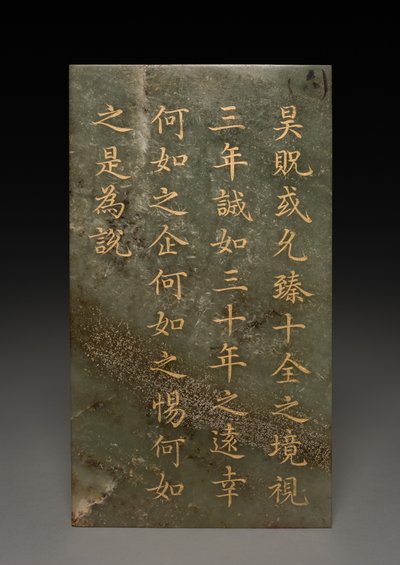 昊貺或允臻十全之境視
三年誠如三十年之遠幸
何如之企何如之惕何如
之是為說